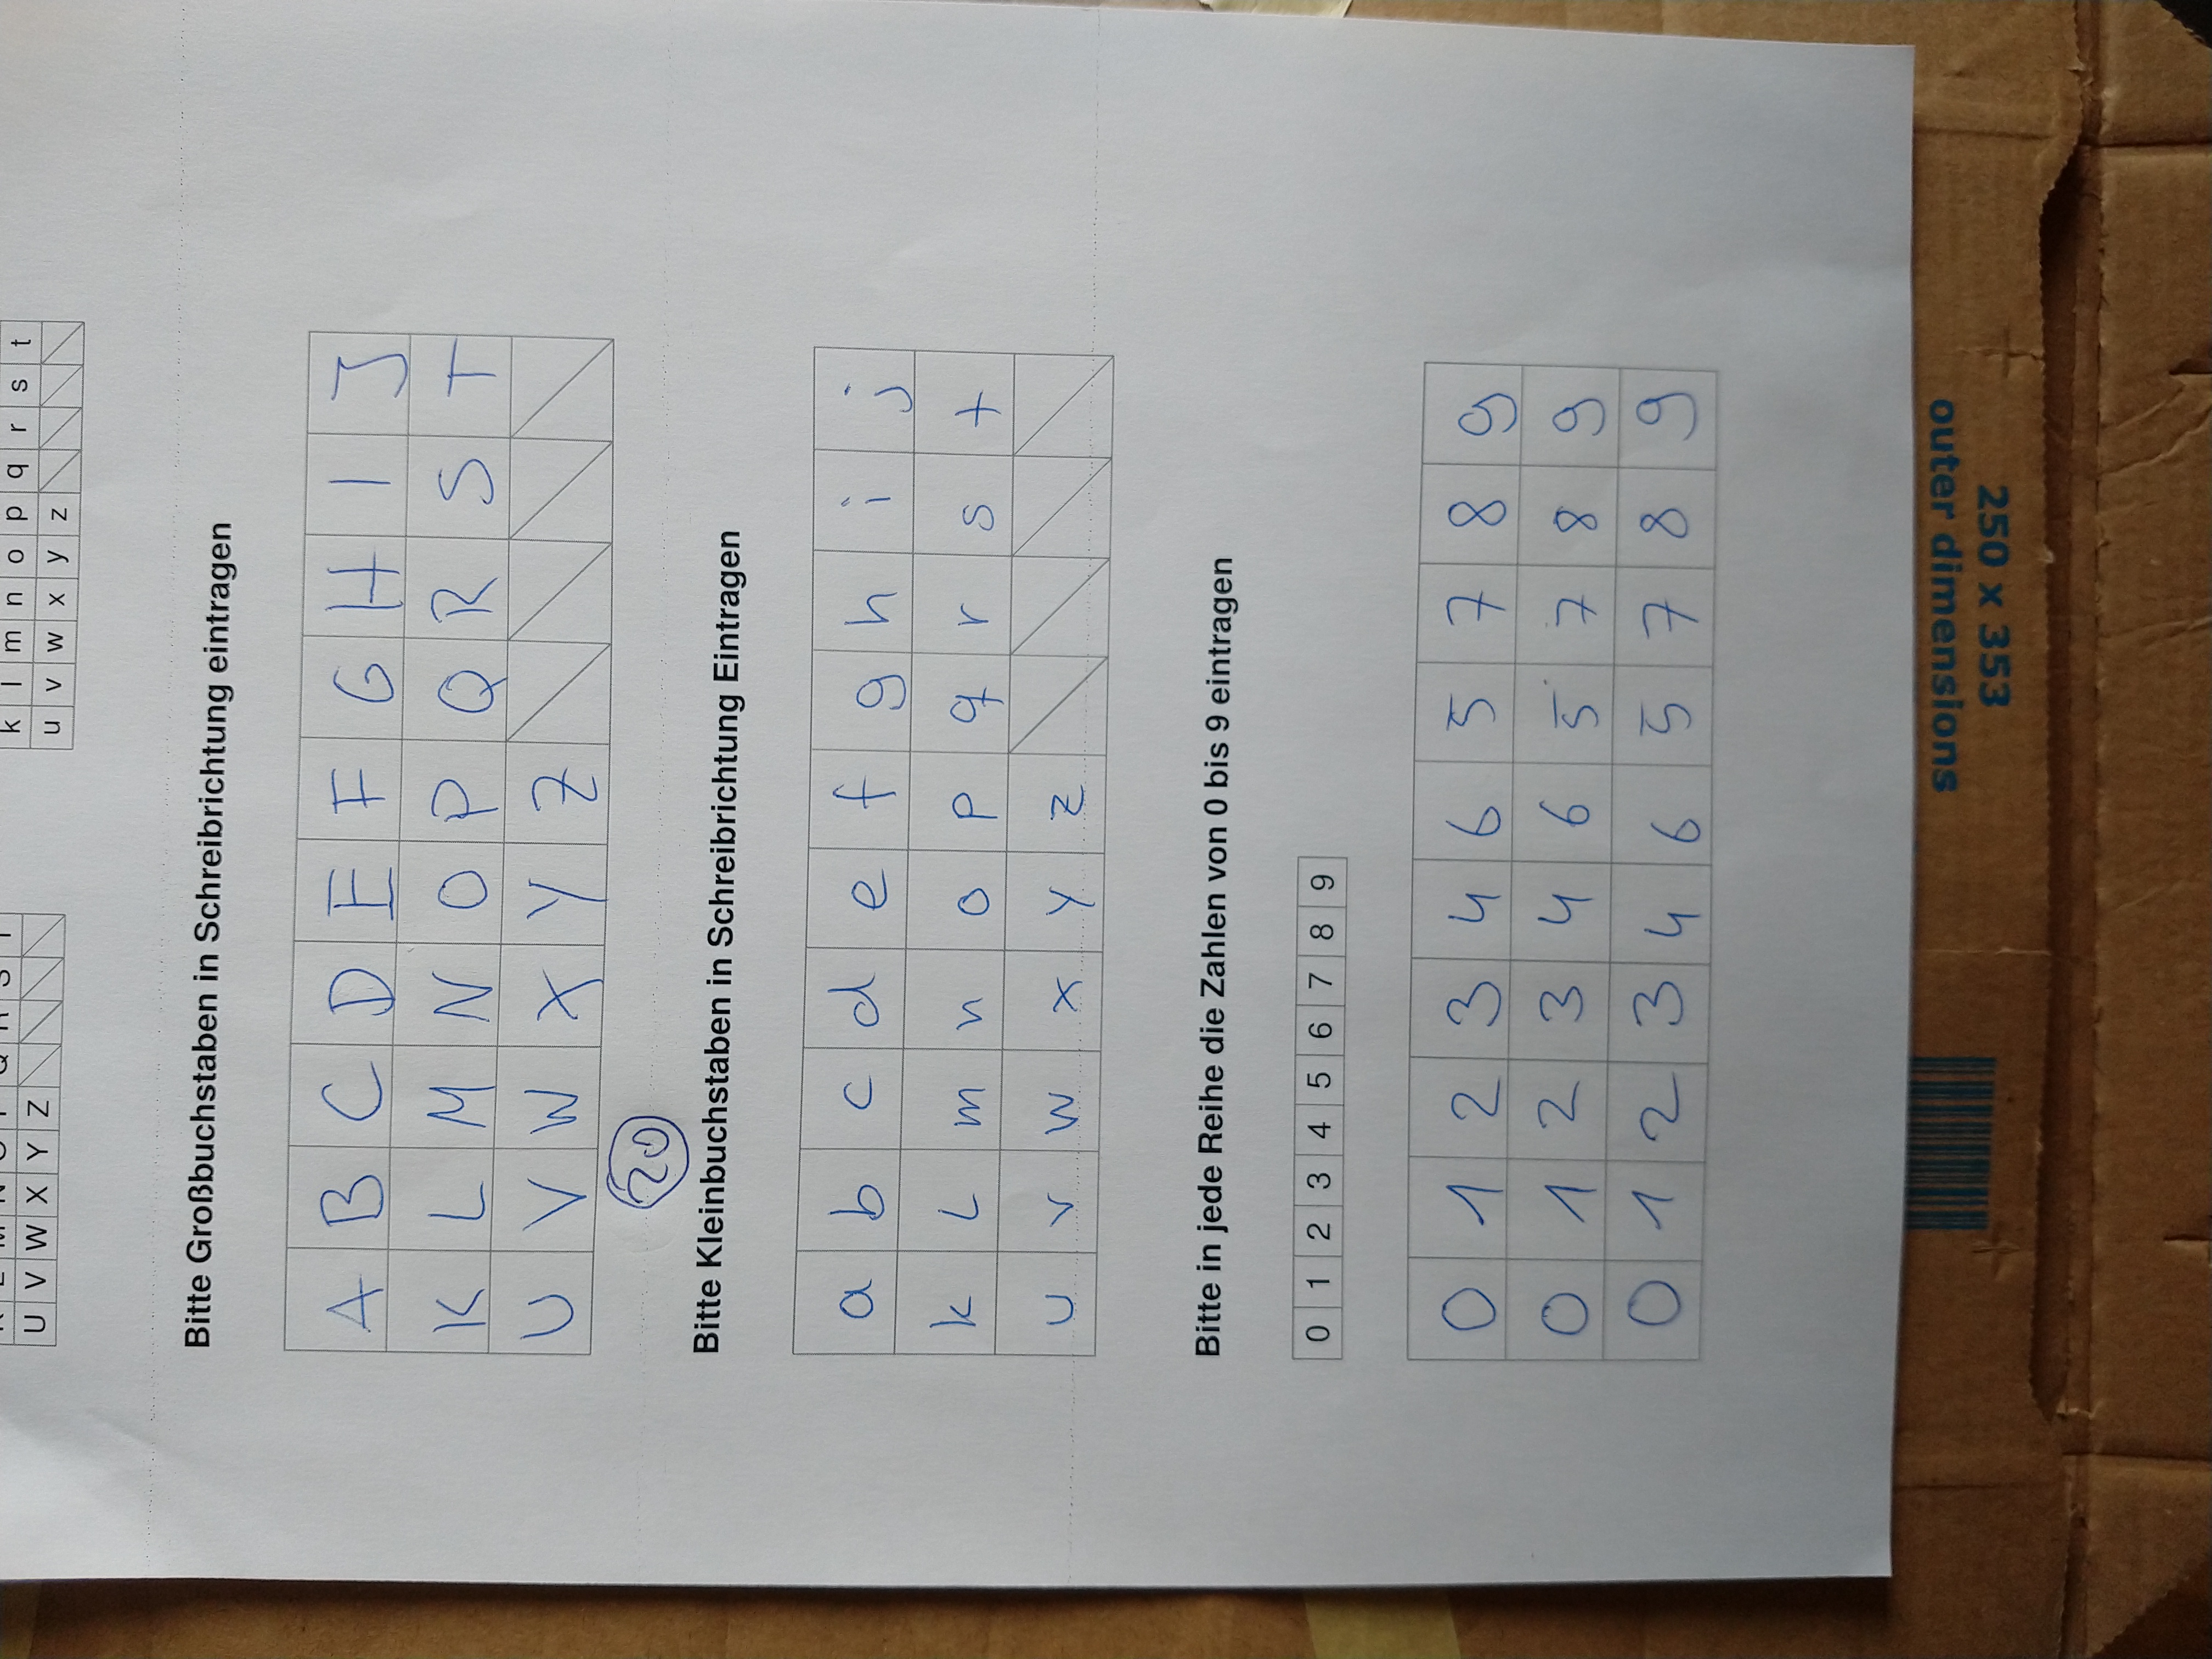 K L M N O P Q R S T
U V W X Y Z
k l m n o p q r s t
u v w x y z
Bitte Großbuchstaben in Schreibrichtung eintragen
A B C D E F G H I J
K L M N O P Q R S T
U V W X Y Z
20
Bitte Kleinbuchstaben in Schreibrichtung Eintragen
a b c d e f g h i j
k l m n o p q r s t
u v w x y z
Bitte in jede Reihe die Zahlen von 0 bis 9 eintragen
0 1 2 3 4 5 6 7 8 9
0 1 2 3 4 6 5 7 8 9
0 1 2 3 4 6 5 7 8 9
0 1 2 3 4 6 5 7 8 9
outer dimensions
250 x 353